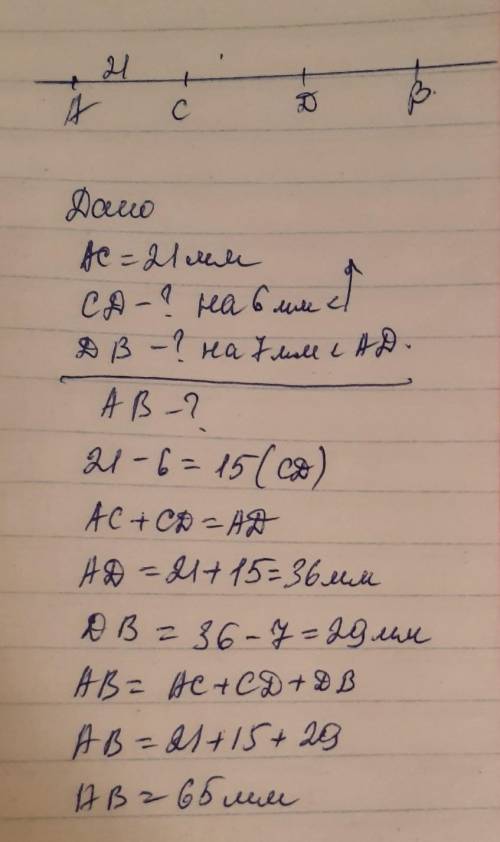 21
A C D B
Дано
AC = 21 мм
CD - ? на 6 мм <↑
DB - ? на 7 мм < AD.
AB - ?
21 - 6 = 15 (CD)
AC + CD = AD
AD = 21 + 15 = 36 мм
DB = 36 - 7 = 29 мм
AB = AC + CD + DB
AB = 21 + 15 + 29
AB = 65 мм